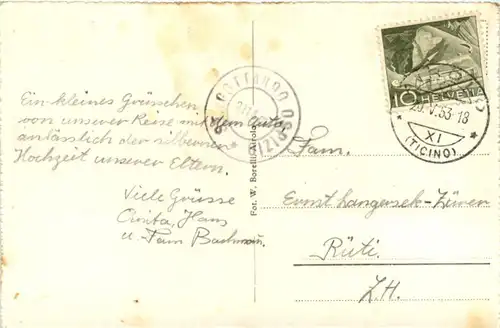 Ein kleines Grüsschen
von unserer Reise mit dem Auto
anlässlich der silbernen
Hochzeit unserer Eltern.
Viele Grüsse
Hans
u. Fam.
GOTTARDO OSPIZIO
Fot. W. Borelli, Airolo
10 HELVETIA
AIROLO
20.V.53-18
XI
(TICINO)
Fam.
Ernst
Rüti.
Z.H.